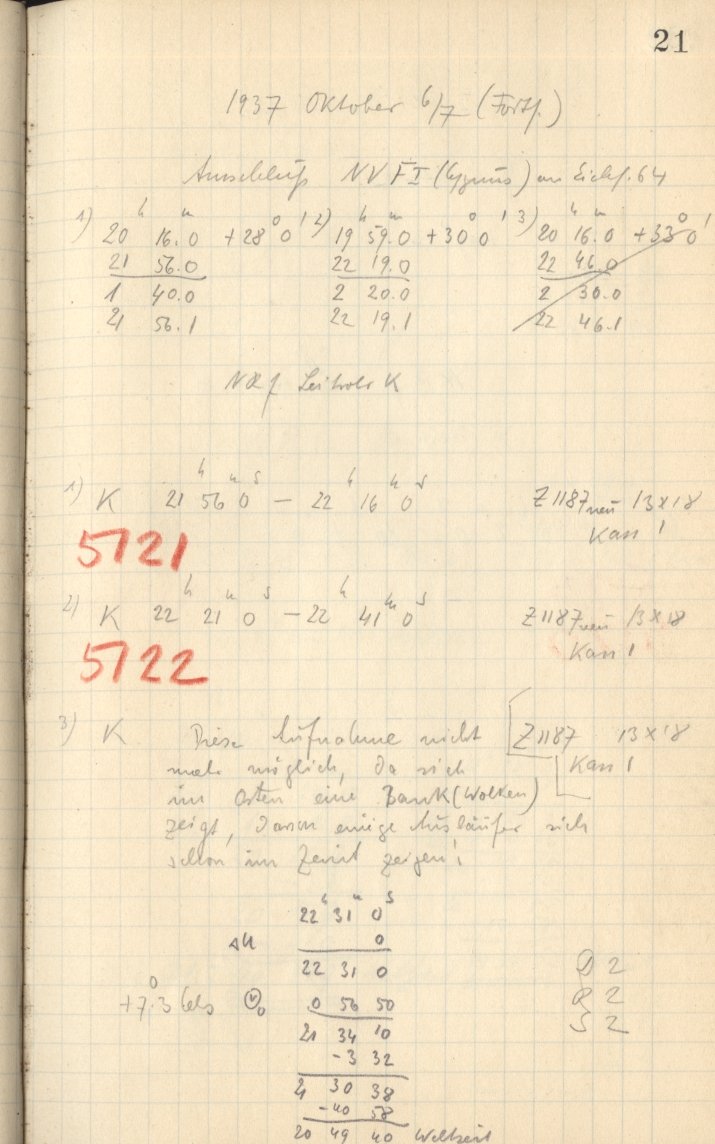 21
1937 Oktober 6/7 (Forts.)
Anschluß NV F I (Cygnus) an Eichf. 64
1) 20 h 16.0 m +28° 0' 2) 19 h 59.0 m +30° 0' 3) 20 h 16.0 m +33° 0'
21 56.0 22 19.0 22 46.0
1 40.0 2 20.0 2 30.0
21 56.1 22 19.1 22 46.1
K
1) K 21 h 56 m 0 s – 22 h 16 m 0 s Z 1187 neu 13 x 18
Kass 1
5121
2) K 22 h 21 m 0 s – 22 h 41 m 0 s Z 1187 neu 13 x 18
Kass 1
5122
3) K Diese Aufnahme nicht Z 1187 13 x 18
mehr möglich, da sich Kass 1
im Osten eine Bank (Wolken)
zeigt, davon einige Ausläufer sich
schon im Zenit zeigen!
22 h 31 m 0 s
ΔU 0
22 31 0 D 2
+7.3° Cels 0 56 50 R 2
21 34 10 S 2
-3 32
21 30 38
-40 58
20 49 40 Weltzeit